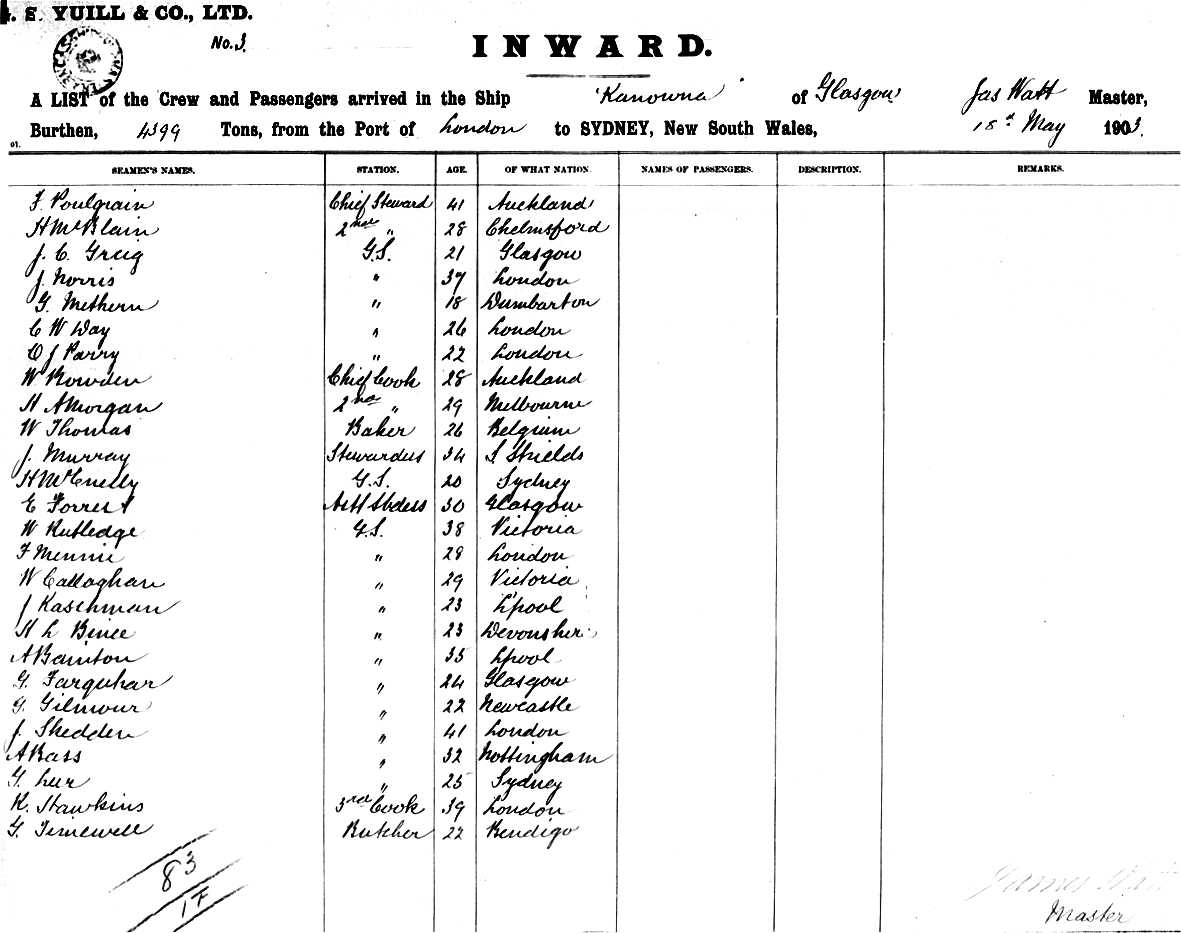 . S. YUILL & CO., LTD.
No. 3.
INWARD.
A LIST of the Crew and Passengers arrived in the Ship 'Kanowna' of Glasgow Jas Watt Master,
Burthen, 4399 Tons, from the Port of London to SYDNEY, New South Wales, 18th May 1903.
SEAMEN'S NAMES. STATION. AGE. OF WHAT NATION. NAMES OF PASSENGERS. DESCRIPTION. REMARKS.
F. Poulgrain Chief Steward 41 Auckland
H McBlain 2nd " 28 Chelmsford
J. C. Greig G.S. 21 Glasgow
J. Norris " 37 London
G. Methern " 18 Dumbarton
C W Way " 26 London
O J Parry " 22 London
W Bowden Chief Cook 28 Auckland
H A Morgan 2nd " 29 Melbourne
W Thomas Baker 26 Belgium
J. Murray Stewardess 34 S Shields
H McEnelly G.S. 20 Sydney
E Forrest Asst Stdess 30 Glasgow
W Rutledge G.S. 38 Victoria
F Mennie " 28 London
W Callaghan " 29 Victoria
J Kaschman " 23 L'pool
H L Binee " 23 Devonsher
A Bainton " 35 Lpool
G. Farquhar " 24 Glasgow
G. Gilmour " 22 Newcastle
J. Shedden " 41 London
A Bass " 32 Nottingham
G. Luir " 25 Sydney
R. Hawkins 3rd Cook 39 London
G. Timewell Butcher 22 Bendigo
83
17
James Watt
Master